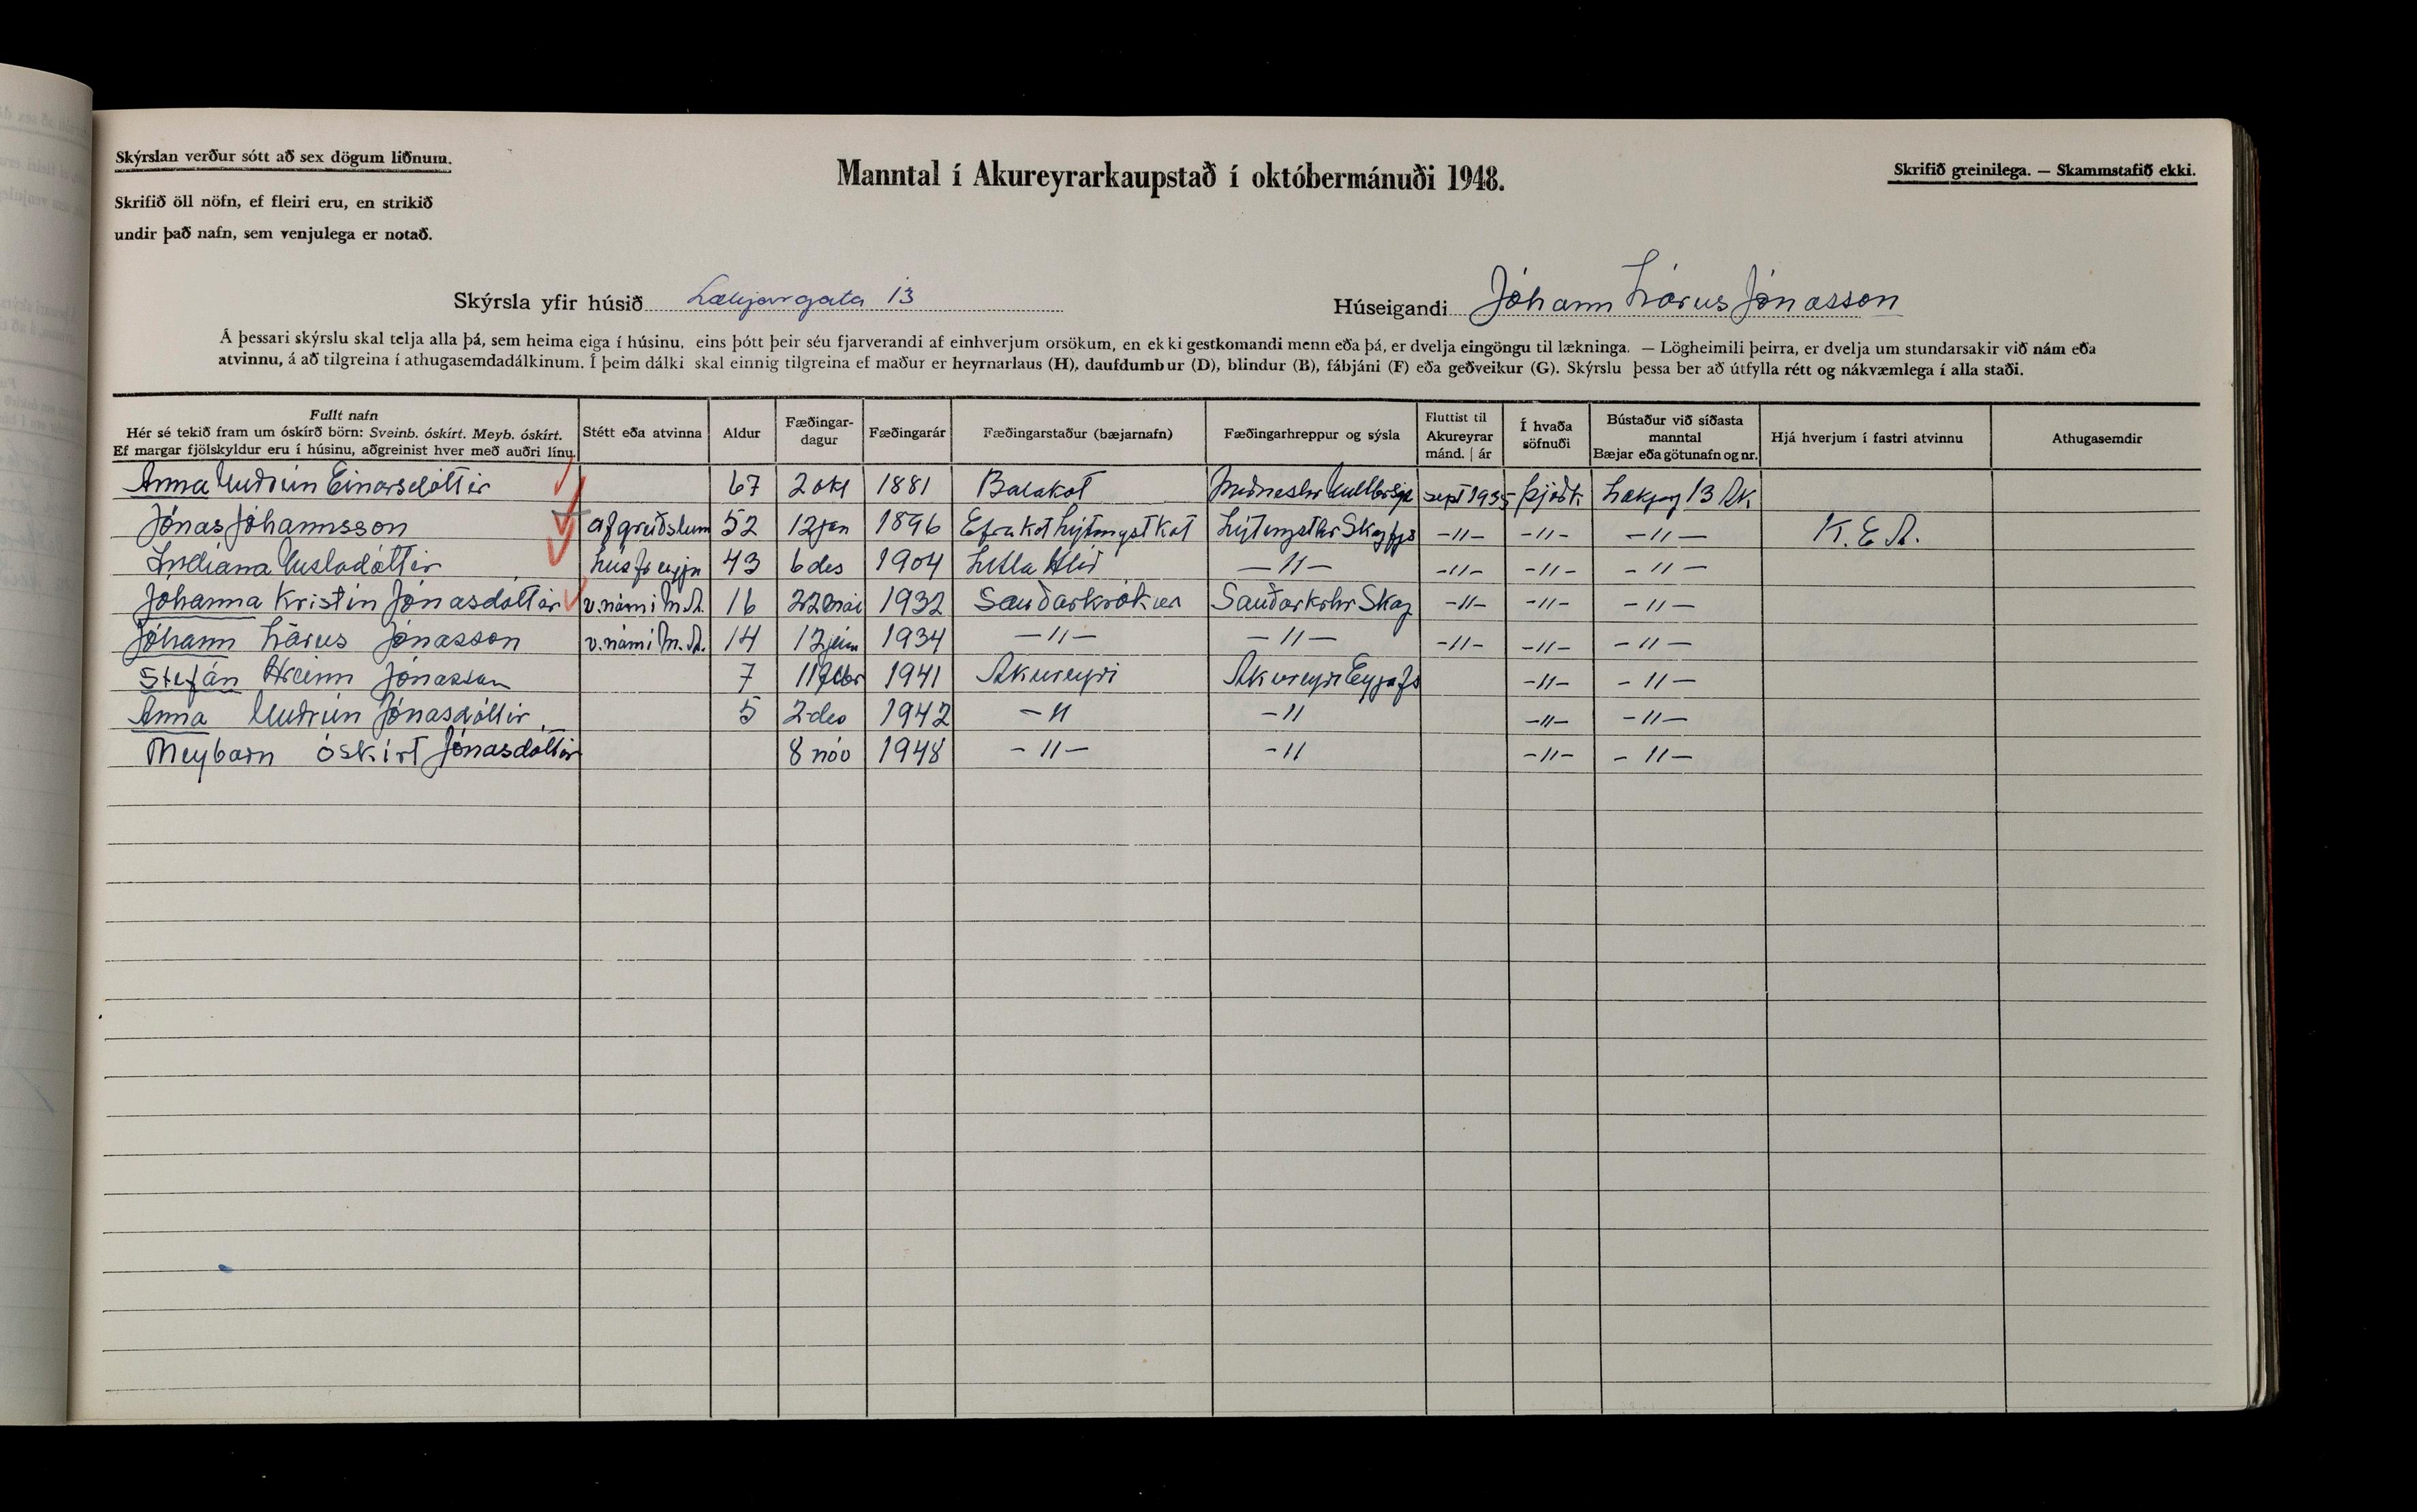 Skýrslan verður sótt að sex dögum liðnum.
Skrifið öll nöfn, ef fleiri eru, en strikið
undir það nafn, sem venjulega er notað.
Manntal í Akureyrarkaupstað í októbermánuði 1948.
Skrifið greinilega. — Skammstafið ekki.
Skýrsla yfir húsið Lækjargata 13
Húseigandi Jóhann Lárus Jónasson
Á þessari skýrslu skal telja alla þá, sem heima eiga í húsinu, eins þótt þeir séu fjarverandi af einhverjum orsökum, en ekki gestkomandi menn eða þá, er dvelja eingöngu til lækninga. — Lögheimili þeirra, er dvelja um stundarsakir við nám eða
atvinnu, á að tilgreina í athugasemdadálkinum. Í þeim dálki skal einnig tilgreina ef maður er heyrnarlaus (H), daufdumbur (D), blindur (B), fábjáni (F) eða geðveikur (G). Skýrslu þessa ber að útfylla rétt og nákvæmlega í alla staði.
Fullt nafn
Hér sé tekið fram um óskírð börn: Sveinb. óskírt. Meyb. óskírt.
Ef margar fjölskyldur eru í húsinu, aðgreinist hver með auðri línu.
Stétt eða atvinna
Aldur
Fæðingar-
dagur
Fæðingarár
Fæðingarstaður (bæjarnafn)
Fæðingarhreppur og sýsla
Fluttist til
Akureyrar
mánd. | ár
Í hvaða
söfnuði
Bústaður við síðasta
manntal
Bæjar eða götunafn og nr.
Hjá hverjum í fastri atvinnu
Athugasemdir
Anna Guðrún Einarsdóttir 67 2 okt 1881 Balakot sept 1935 þjóðk Lækjag 13 Ak
Jónas Jóhannsson afgreiðslum 52 12 jan 1896 Efrakot Lýtingst Skag -11- -11- -11- K.E.A.
Indíana Gísladóttir húsfreyja 43 6 des 1904 Litla Hlíð -11- -11- -11- -11-
Jóhanna Kristín Jónasdóttir v. námi M.A. 16 22 maí 1932 Sauðarkrókur Sauðarkrhr Skag -11- -11- -11-
Jóhann Lárus Jónasson v. námi M.A. 14 12 júní 1934 -11- -11- -11- -11- -11-
Stefán Hreinn Jónasson 7 11 febr 1941 Akureyri Akureyri Eyjafs -11- -11-
Anna Guðrún Jónasdóttir 5 2 des 1942 -11 -11 -11- -11-
Meybarn óskírt Jónasdóttir 8 nóv 1948 -11- -11 -11- -11-